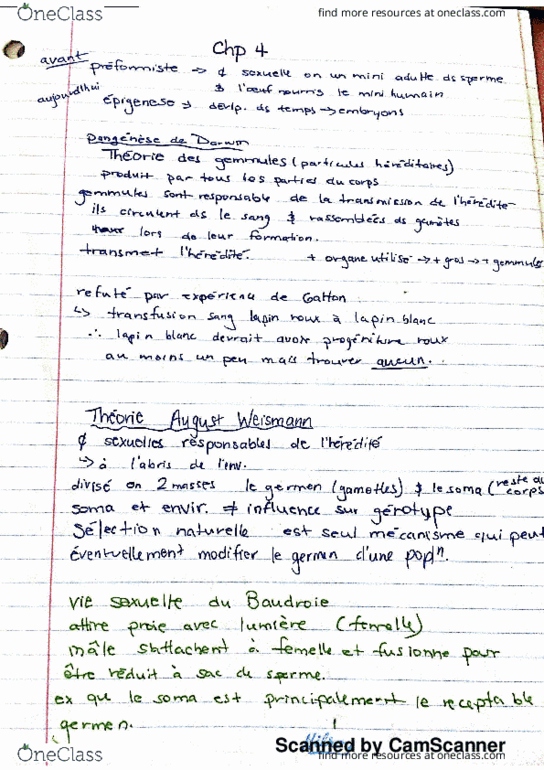 OneClass
find more resources at oneclass.com
Chp 4
avant préformiste → ¢ sexuelle on un mini adulte ds sperme
& l'œuf nourris le mini humain
aujourdhui épigenese → devlp. ds temps → embryons
Pangénèse de Darwin
Théorie des gemmules (particules héréditaires)
produit par tous les parties du corps
gemmules sont responsable de la transmission de l'hérédité
ils circulent ds le sang & rassemblées ds gamètes
lors de leur formation.
transmet l'hérédité. + organe utilisé → + gros → + gemmules
refuté par expérience de Galton
↳ transfusion sang lapin roux à lapin blanc
∴ lapin blanc devrait avoir progéniture roux
au moins un peu mais trouver aucun.
Théorie August Weismann
¢ sexuelles responsables de l'hérédité
↳ à l'abris de l'env.
divisé en 2 masses le germen (gamettes) & le soma (reste du corps
soma et envir. ≠ influence sur génotype
Sélection naturelle est seul mécanisme qui peut
éventuellement modifier le germen d'une popⁿ.
vie sexuelle du Baudroie
attire proie avec lumière (femelle)
mâle s'attachent à femelle et fusionne pour
être réduit à sac de sperme.
ex que le soma est principalement le receptable
germen.
Scanned by CamScanner
OneClass
find more resources at oneclass.com